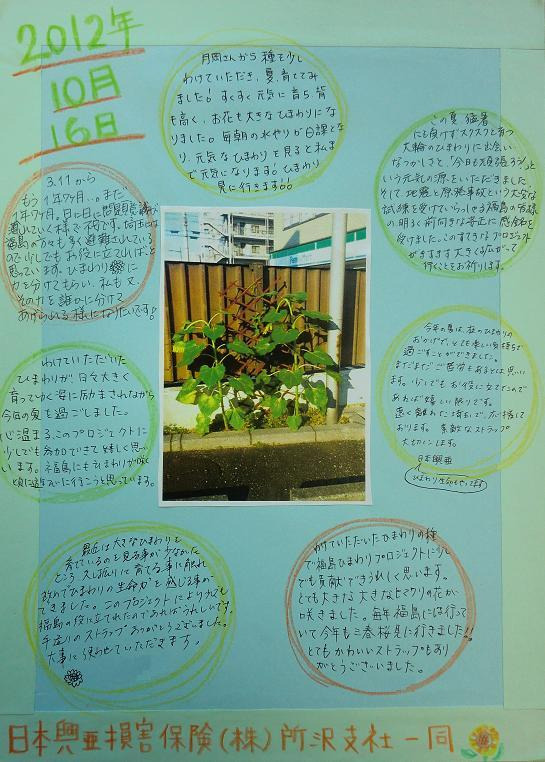 2012年
10月
16日
月岡さんから種を少し
わけていただき、夏、育ててみ
ました! すくすく元気に育ち、背
も高く、お花も大きなひまわりにな
りました。毎朝の水やりが日課とな
り、元気なひまわりを見ると私ま
で元気になります。ひまわり
見に行きます!!
この夏、猛暑
にも負けずスクスクと育つ
大輪のひまわりに出会い
なつかしさと、「今日も頑張ろう!」と
いう元気の源をいただきました。
そして地震と原発事故という大変な
試練を受けていらっしゃる福島の皆様
の明るく前向きな姿に感銘を
受けました。このすてきなプロジェクトが
ますます大きく広がって
行くことをお祈ります。
3.11から
もう1年7ヶ月、、まだ
1年7ヶ月。日に日に問題意識が
薄い
福島の方々も多く避難されている
ので少しでもお役に立てればと
思っています。ひまわりに
力を分けてもらい、私も又、
その力を誰かに分けて
あげられる様になりたいです!
わけていただいた
ひまわりが日々大きく
育っていく姿に励まされながら
今回の夏を過ごしました。
心温まる、このプロジェクトに
少しでも参加できて嬉しく思い
います。福島にもひまわりが咲く
頃に遊びに行こうと思っています。
今年の夏は、庭のひまわりの
おかげで、とても楽しい気持ちで
過ごすことができました。
まだまだご苦労もあるとは思い
ます。少しでもお役に立てたので
あれば嬉しい限りです。
遠く離れた埼玉で、応援して
おります。素敵なストラップ
大切にします。
日本興亜
ひまわり生命もやってます
最近は大きなひまわりを
育てているのを見る事が少なかった
ところ、久し振りに育てる事に触れ
改めてひまわりの生命力を感じる事が
できました。このプロジェクトにより少しでも
福島の役に立てれたのであればうれしいです。
手造りのストラップありがとうございました。
大事に使わせていただきます。
分けていただいたひまわりの種
で福島ひまわりプロジェクトに少し
でも貢献できうれしく思います。
とても大きな大きなビックリの花が
咲きました。毎年福島には行って
いて今年も三春桜見に行きました!!
とてもかわいいストラップもあり
がとうございました。
日本興亜損害保険(株)所沢支社一同